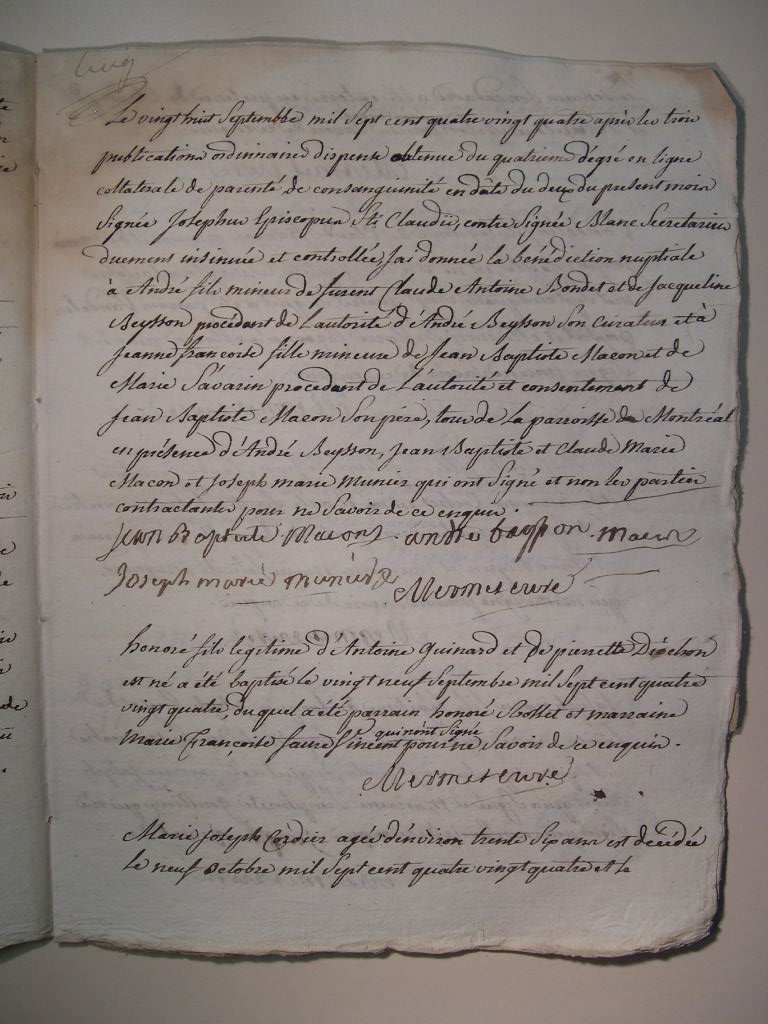 Le vingt huit Septembre mil Sept cent quatre vingt quatre après les trois
publications ordinnaires dispense obtenue du quatrieme dégré en ligne
collaterale de parenté de consanguinité en dâte du deux du present mois
Signée Josephus Episcopus Sti Claudii, contre Signée Blanc Secretarius
duement insinuée et controllée j'ai donnée la bénédiction nuptiale
à André fils mineur de furent Claude Antoine Bondet et de Jacqueline
Beysson procédant de L'autorité d'André Beysson Son curateur et à
Jeanne françoise fille mineure de Jean Baptiste Macon et de
Marie Savarin procedant de L'autorité et consentement de
Jean Baptiste Macon Son pére, tous de la parroisse de Montréal
en présence d'André Beysson, Jean Baptiste et Claude Marie
Macon et Joseph marie Munier qui ont Signé et non les parties
contractantes pour ne Savoir de ce enquis.
jean Baptiste Macon andré beysson macon
Joseph marie munier
Mermet curé
honoré fils legitime d'Antoine Guinard et de pierrette
est né a été baptisé le vingt neuf Septembre mil Sept cent quatre
vingt quatre, du quel a été parrain honoré et marraine
qui n'ont Signé
Marie Françoise faure pour ne Savoir de ce enquis.
Mermet curé
Marie Joseph Cordier agée d'environ trente Six ans est décédée
Le neuf octobre mil Sept cent quatre vingt quatre et le